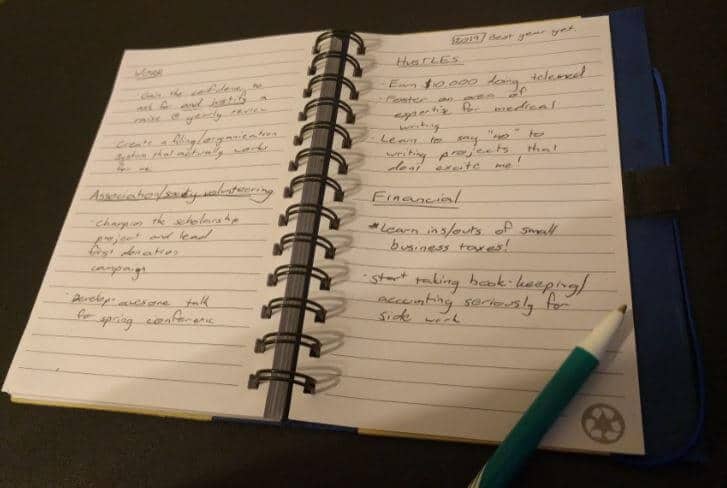 Work
· Gain the confidence to
ask for and justify a
raise @ yearly review
· Create a filing/organization
system that actually works
for me
Association/society volunteering
· champion the scholarship
project and lead
first donation
campaign
· Develop awesome talk
for spring conference
2019 Best year yet.
HUSTLES
· Earn $10,000 doing telemed
· Foster an area of
expertise for medical
writing
· Learn to say "no" to
writing projects that
dont excite me!
Financial
* Learn ins/outs of small
business taxes!
· Start taking book-keeping/
accounting seriously for
side work